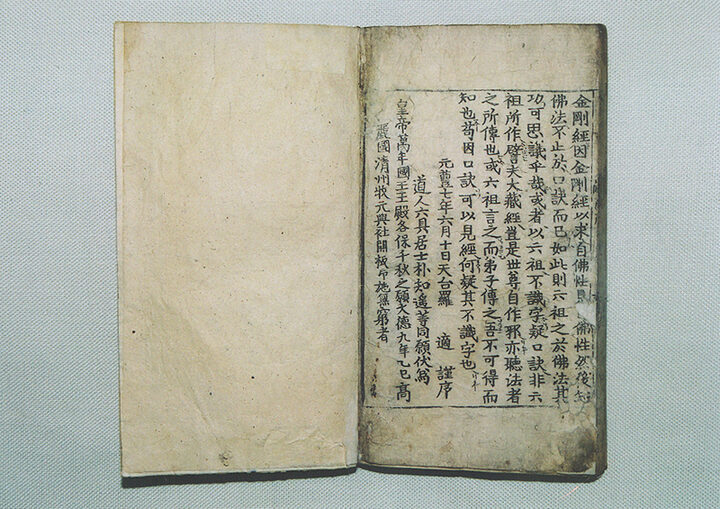 金剛經因金剛經以求自佛性 佛性然後知
佛法不止於口訣而已如此則六祖之於佛法其
功可思議乎哉或者以六祖不識字疑口訣非六
祖所作譬夫大藏經豈是世尊自作邪亦聽法者
之所傳也或六祖言之而弟子傳之吾不可得而
知也苟因口訣可以見經何疑其不識字也
元豊七年六月十日天台羅 適 謹序
道人六具居士朴知遙等同願伏爲
皇帝萬年國王王殿各保千秋之願大德九年乙巳高
麗國清州牧元興社開板印施無窮者